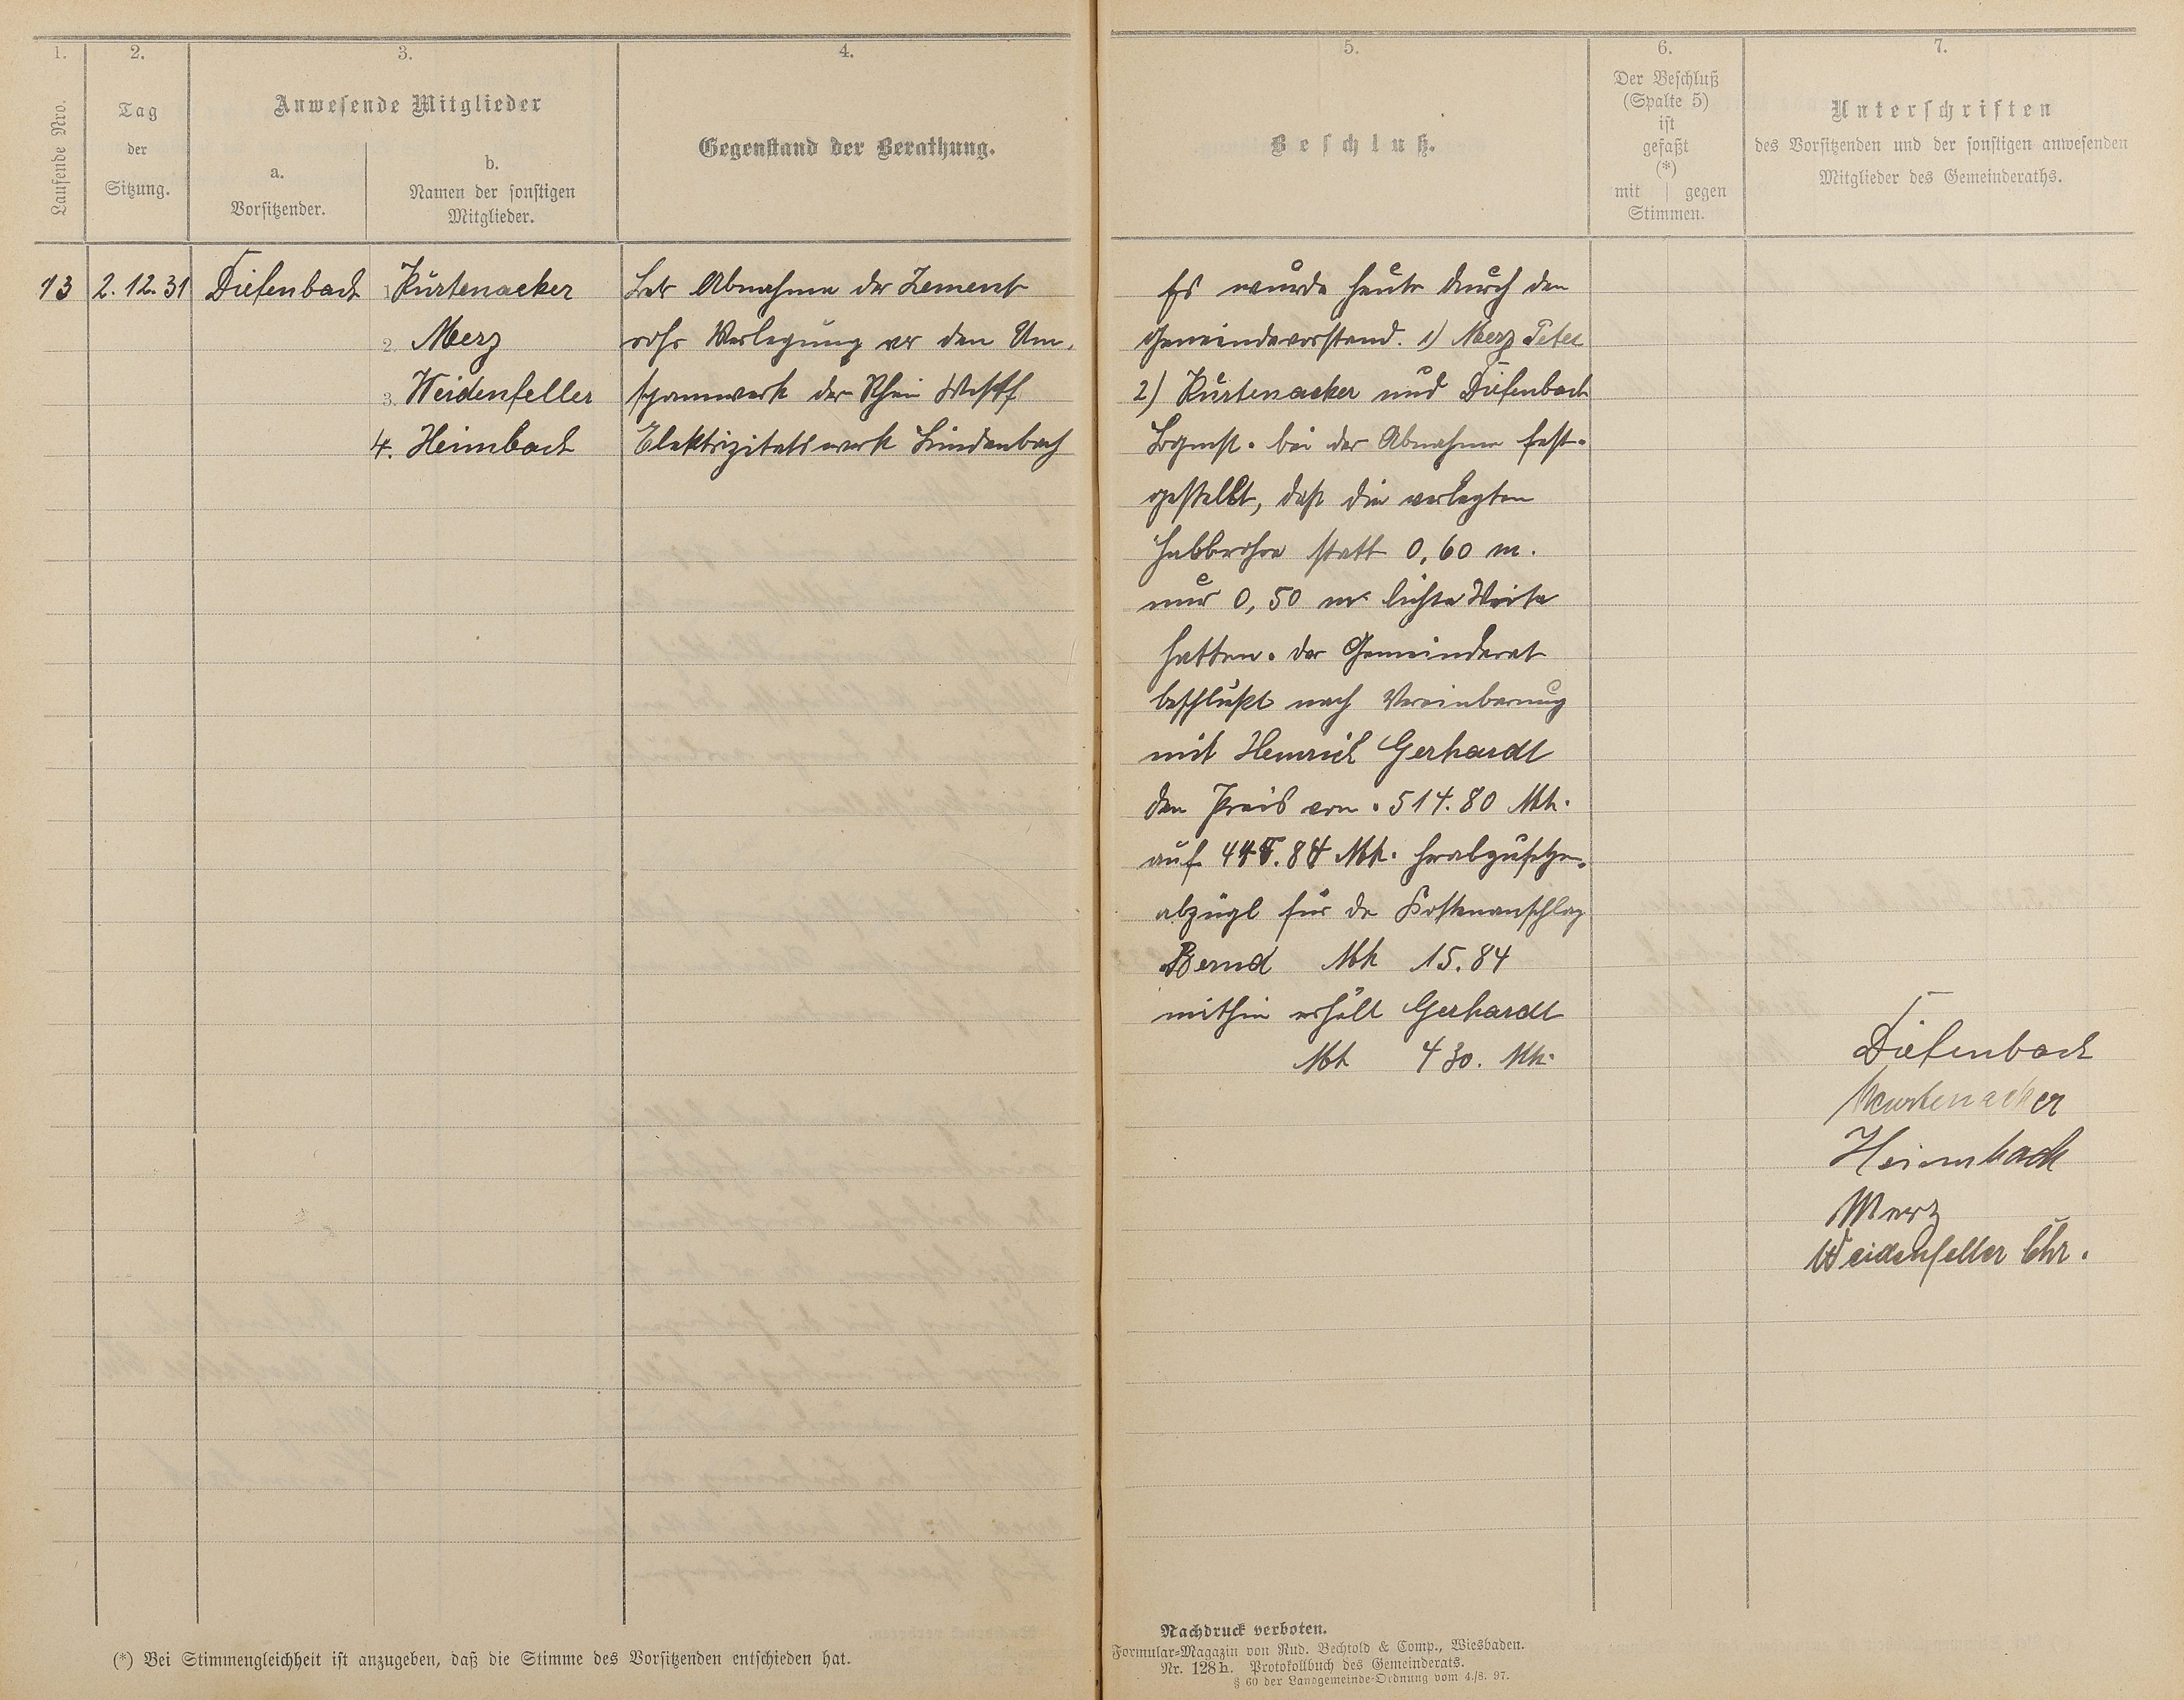 1.
2.
3.
4.
Laufende Nro.
Tag
der
Sitzung.
Anwesende Mitglieder
a.
Vorsitzender.
b.
Namen der sonstigen
Mitglieder.
Gegenstand der Berathung.
13
2. 12. 31
Diefenbach
1. Kurtenacker
2. Merz
3. Weidenfeller
4. Heimbach
Betr Abnahme der Zement
rohr Verlegung vor den Um-
spannwerk der Rhein Westf
Elektrizitatswerk Lindenbach
(*) Bei Stimmengleichheit ist anzugeben, daß die Stimme des Vorsitzenden entschieden hat.
5.
6.
7.
Beschluß.
Der Beschluß
(Spalte 5)
ist
gefaßt
(*)
mit | gegen
Stimmen.
Unterschriften
des Vorsitzenden und der sonstigen anwesenden
Mitglieder des Gemeinderaths.
Es wurde heute durch den
Gemeindevorstand. 1) Merz Peter
2) Kurtenacker und Diefenbach
Bgmst. bei der Abnahme fest-
gestellt, daß die verlegten
Halbrohre statt 0,60 m.
nur 0,50 m lichte Weite
hatten. der Gemeinderat
beschlußt nach Vereinbarung
mit Heinrich Gerhardt
den Preis von 514.80 Mk.
auf Mk. herabzusetzen
abzügl für de Kostenanschlag
Bernd Mk 15.84
mithin erhält Gerhardt
Mk 430. Mk.
Diefenbach
Kurtenacker
Heimbach
Merz
Weidenfeller Chr.
Nachdruck verboten.
Formular-Magazin von Rud. Bechtold & Comp., Wiesbaden.
Nr. 128h. Protokollbuch des Gemeinderats.
§ 60 der Landgemeinde-Ordnung vom 4./8. 97.